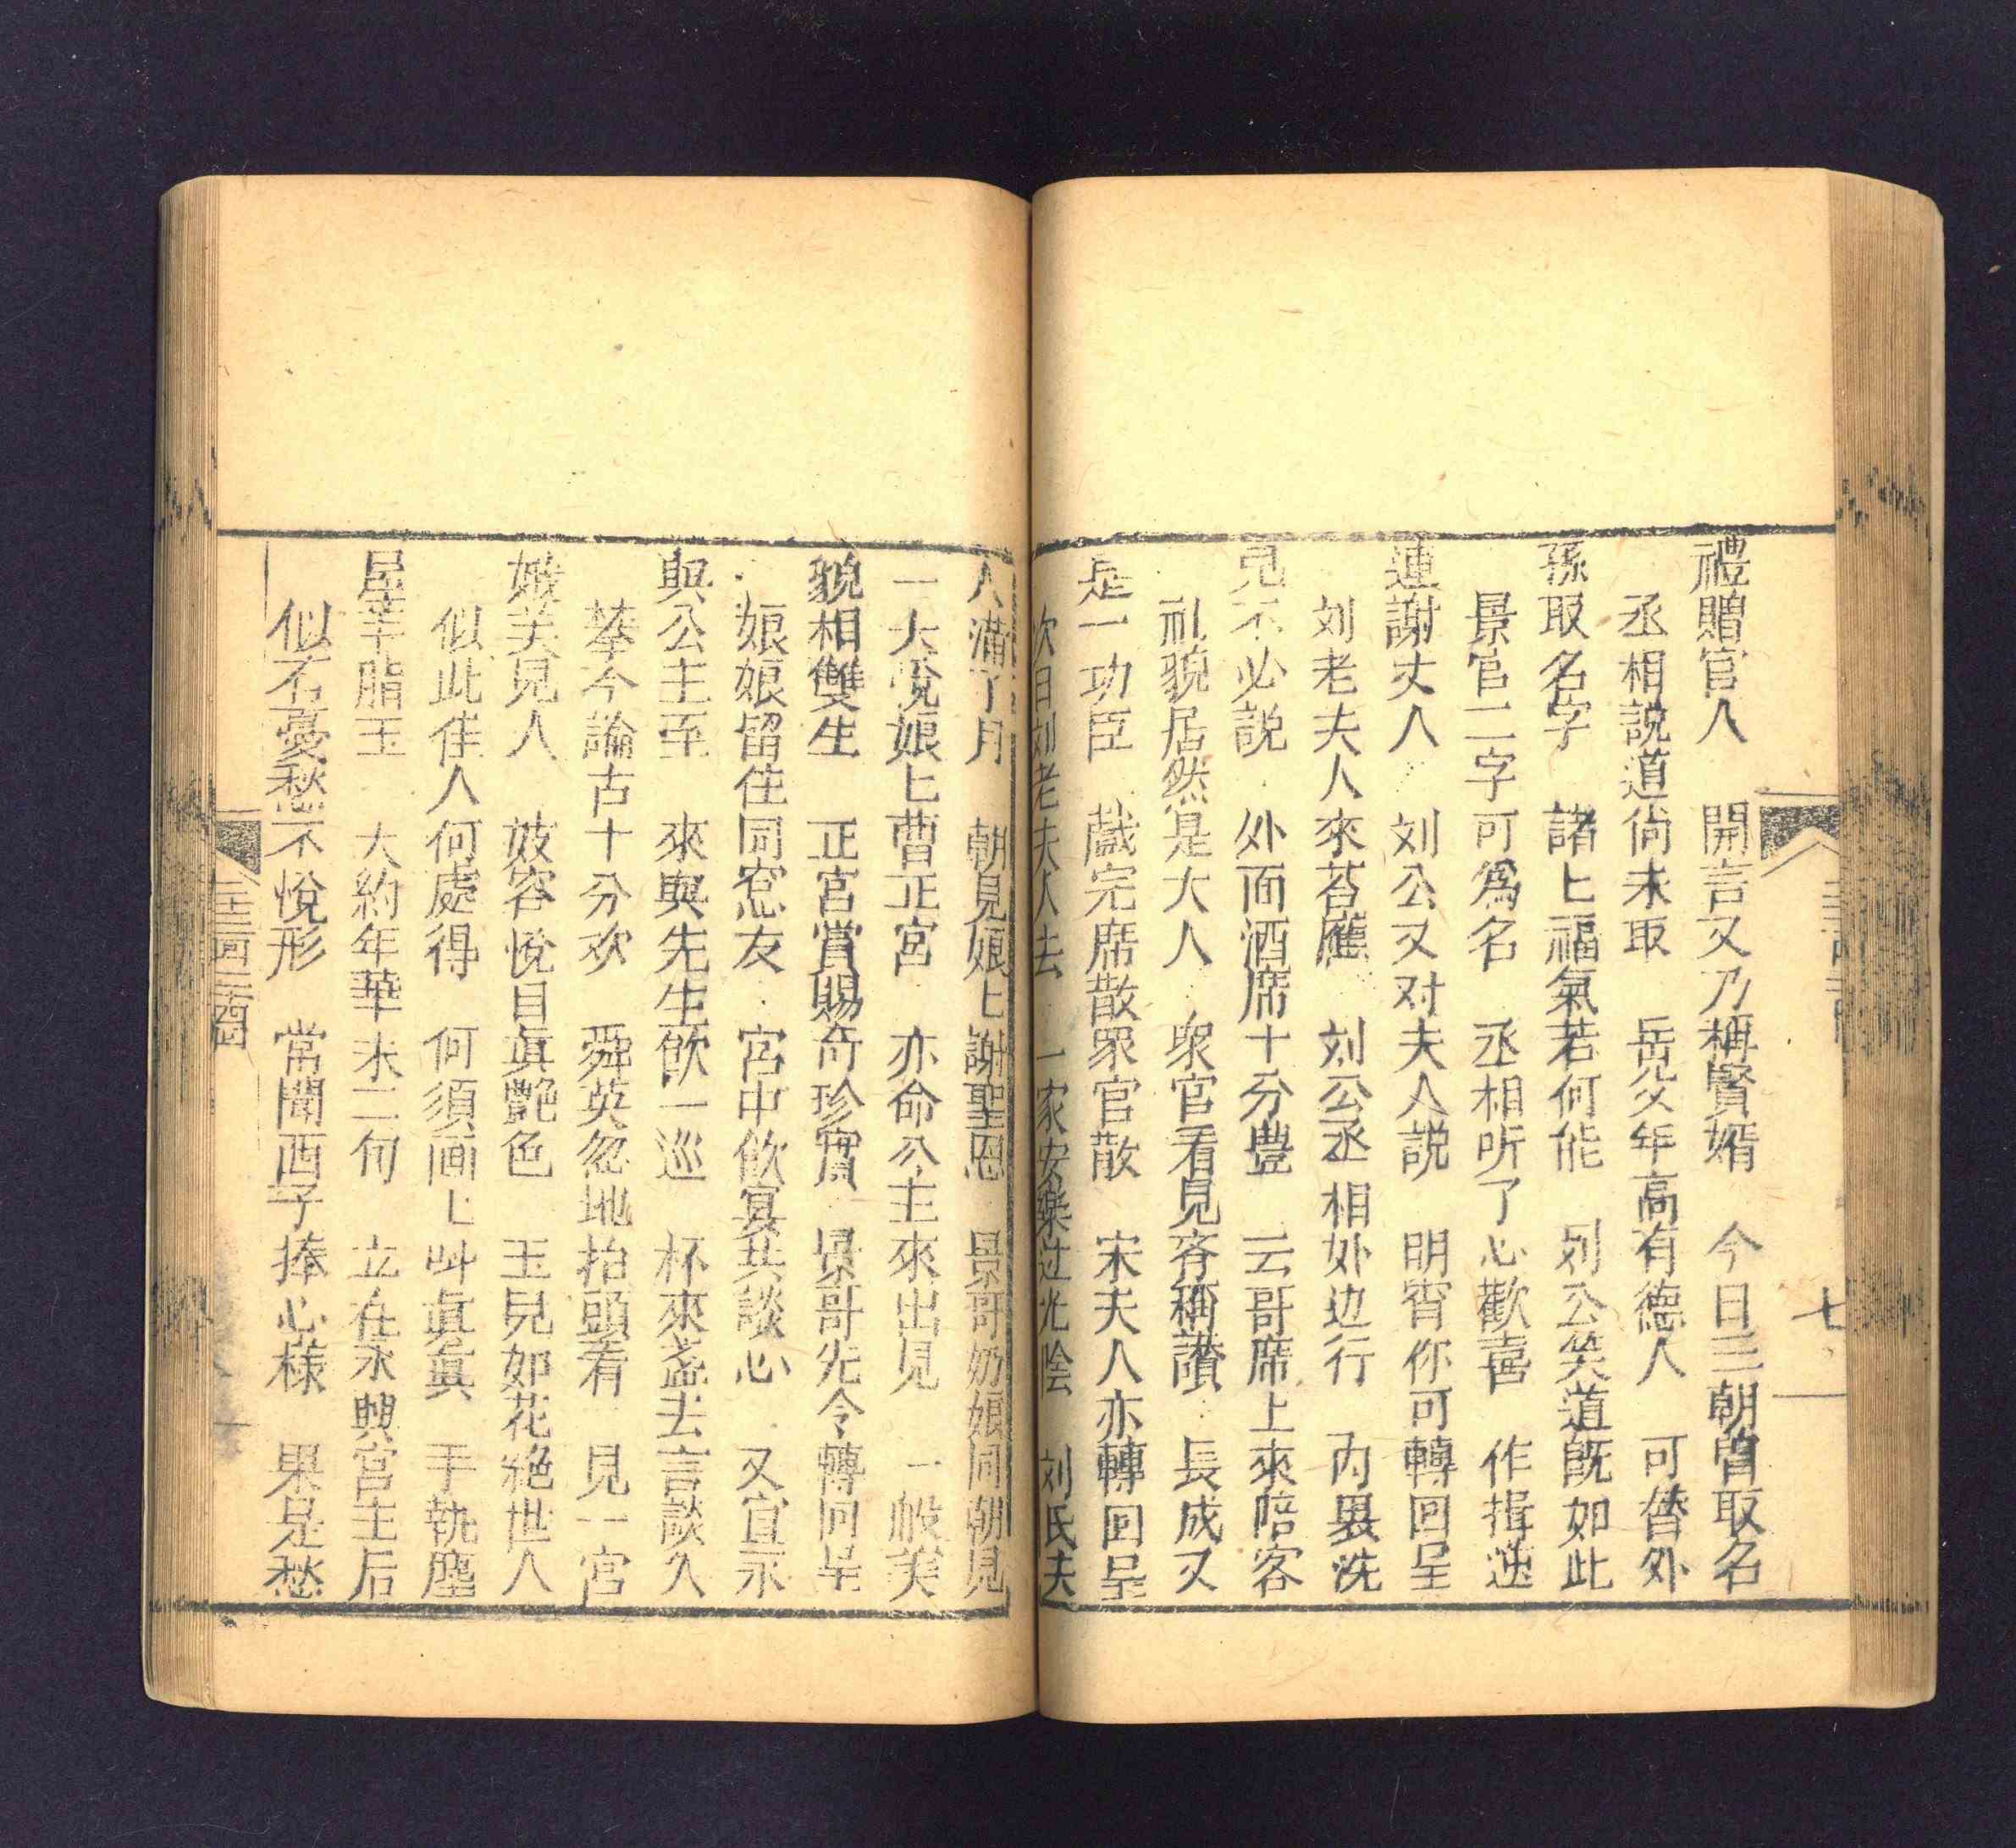 禮贈官人　開言又乃稱賢婿　今日三朝皆取名
丞相説道尚未取　岳父年高有德人　可替外
孫取名字　諸匕福氣若何能　刘公笑道旣如此
景官二字可爲名　丞相听了心歡喜　作揖逆
連謝丈人　刘公又对夫人説　明宵你可轉回呈
刘老夫人來荅應　刘公丞相外边行　內裏洗
見不必説　外面酒席十分豊　云哥席上來陪客
礼貌居然是大人　衆官看見齐稱讚　長成又
是一功臣　戲完席散眾官散　宋夫人亦轉回呈
次日刘老夫人去　一家安樂过光陰　刘氏夫
人满了月　朝見娘匕謝聖恩　景哥奶娘同朝見
一大悅娘匕曹正宮　亦命公主來出見　一般美
貌相雙生　正宮賞賜奇珍寳　景哥先令轉回呈
娘娘留住同窓友　宮中飲宴共談心　又宣永
興公主至　來與先生飲一巡　杯來盞去言談久
攀今論古十分欢　舜英忽地抬頭看　見一宮
娥美見人　妓容悅目眞艷色　玉兒如花絕世人
似此佳人何處得　何須画匕叫眞眞　手執塵
尾羊脂玉　大約年華未二旬　立在永興宮主后
似有憂愁不悅形　常聞西子捧心樣　果是愁
三十三回
七